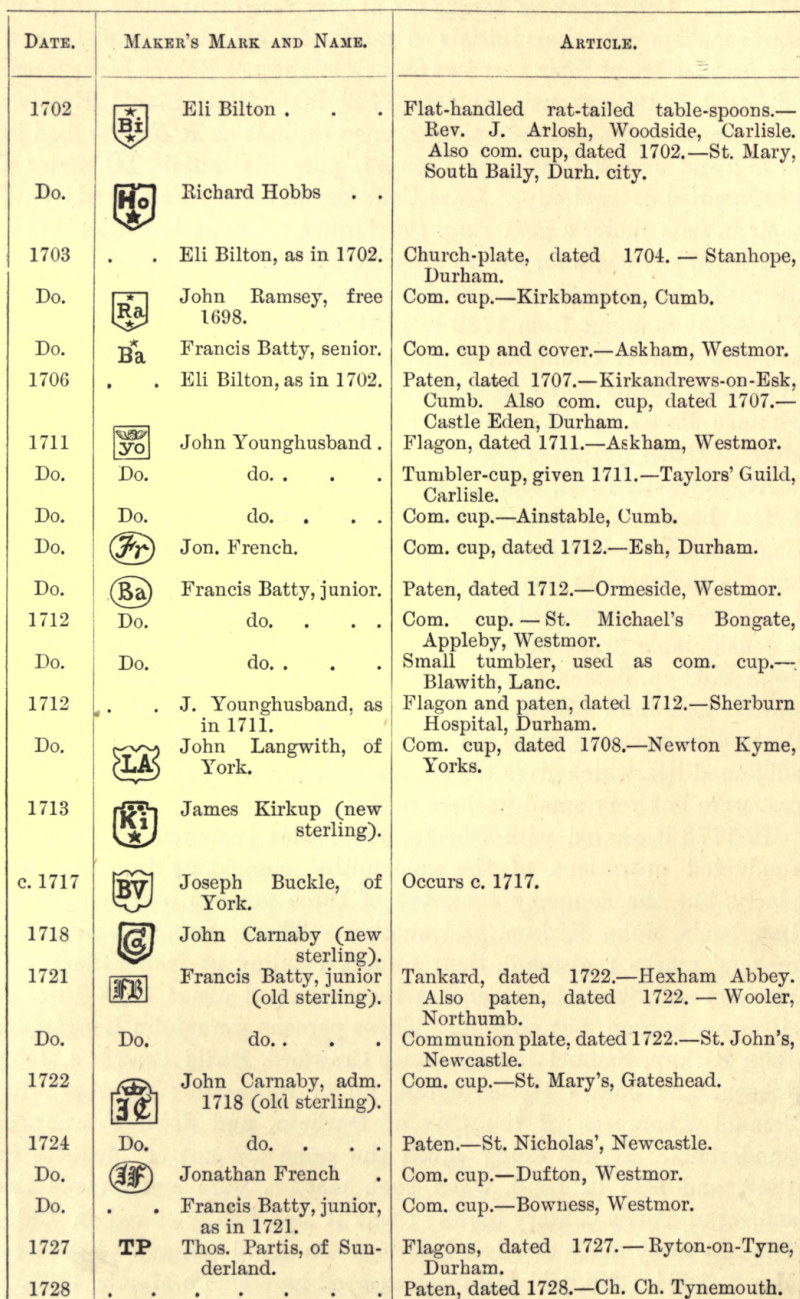 DATE. MAKER'S MARK AND NAME. ARTICLE.
1702 Bi Eli Bilton . . . Flat-handled rat-tailed table-spoons.—
Rev. J. Arlosh, Woodside, Carlisle.
Also com. cup, dated 1702.—St. Mary,
South Baily, Durh. city.
Do. Ho Richard Hobbs . .
1703 . . Eli Bilton, as in 1702. Church-plate, dated 1704. — Stanhope,
Durham.
Do. Ra John Ramsey, free Com. cup.—Kirkbampton, Cumb.
1698.
Do. Ba Francis Batty, senior. Com. cup and cover.—Askham, Westmor.
1706 . . Eli Bilton, as in 1702. Paten, dated 1707.—Kirkandrews-on-Esk,
Cumb. Also com. cup, dated 1707.—
Castle Eden, Durham.
1711 yo John Younghusband . Flagon, dated 1711.—Askham, Westmor.
Do. Do. do. . . . Tumbler-cup, given 1711.—Taylors' Guild,
Carlisle.
Do. Do. do. . . . Com. cup.—Ainstable, Cumb.
Do. Fr Jon. French. Com. cup, dated 1712.—Esh, Durham.
Do. Ba Francis Batty, junior. Paten, dated 1712.—Ormeside, Westmor.
1712 Do. do. . . . Com. cup. — St. Michael's Bongate,
Appleby, Westmor.
Do. Do. do. . . . Small tumbler, used as com. cup.—
Blawith, Lanc.
1712 . . J. Younghusband, as Flagon and paten, dated 1712.—Sherburn
in 1711. Hospital, Durham.
Do. LA John Langwith, of Com. cup, dated 1708.—Newton Kyme,
York. Yorks.
1713 Ki James Kirkup (new
sterling).
c. 1717 BV Joseph Buckle, of Occurs c. 1717.
York.
1718 Ca John Carnaby (new
sterling).
1721 FB Francis Batty, junior Tankard, dated 1722.—Hexham Abbey.
(old sterling). Also paten, dated 1722. — Wooler,
Northumb.
Do. Do. do. . . . Communion plate, dated 1722.—St. John's,
Newcastle.
1722 IC John Carnaby, adm. Com. cup.—St. Mary's, Gateshead.
1718 (old sterling).
1724 Do. do. . . . Paten.—St. Nicholas', Newcastle.
Do. IF Jonathan French . Com. cup.—Dufton, Westmor.
Do. . . Francis Batty, junior, Com. cup.—Bowness, Westmor.
as in 1721.
1727 TP Thos. Partis, of Sun- Flagons, dated 1727.—Ryton-on-Tyne,
derland. Durham.
1728 . . . . . . . Paten, dated 1728.—Ch. Ch. Tynemouth.